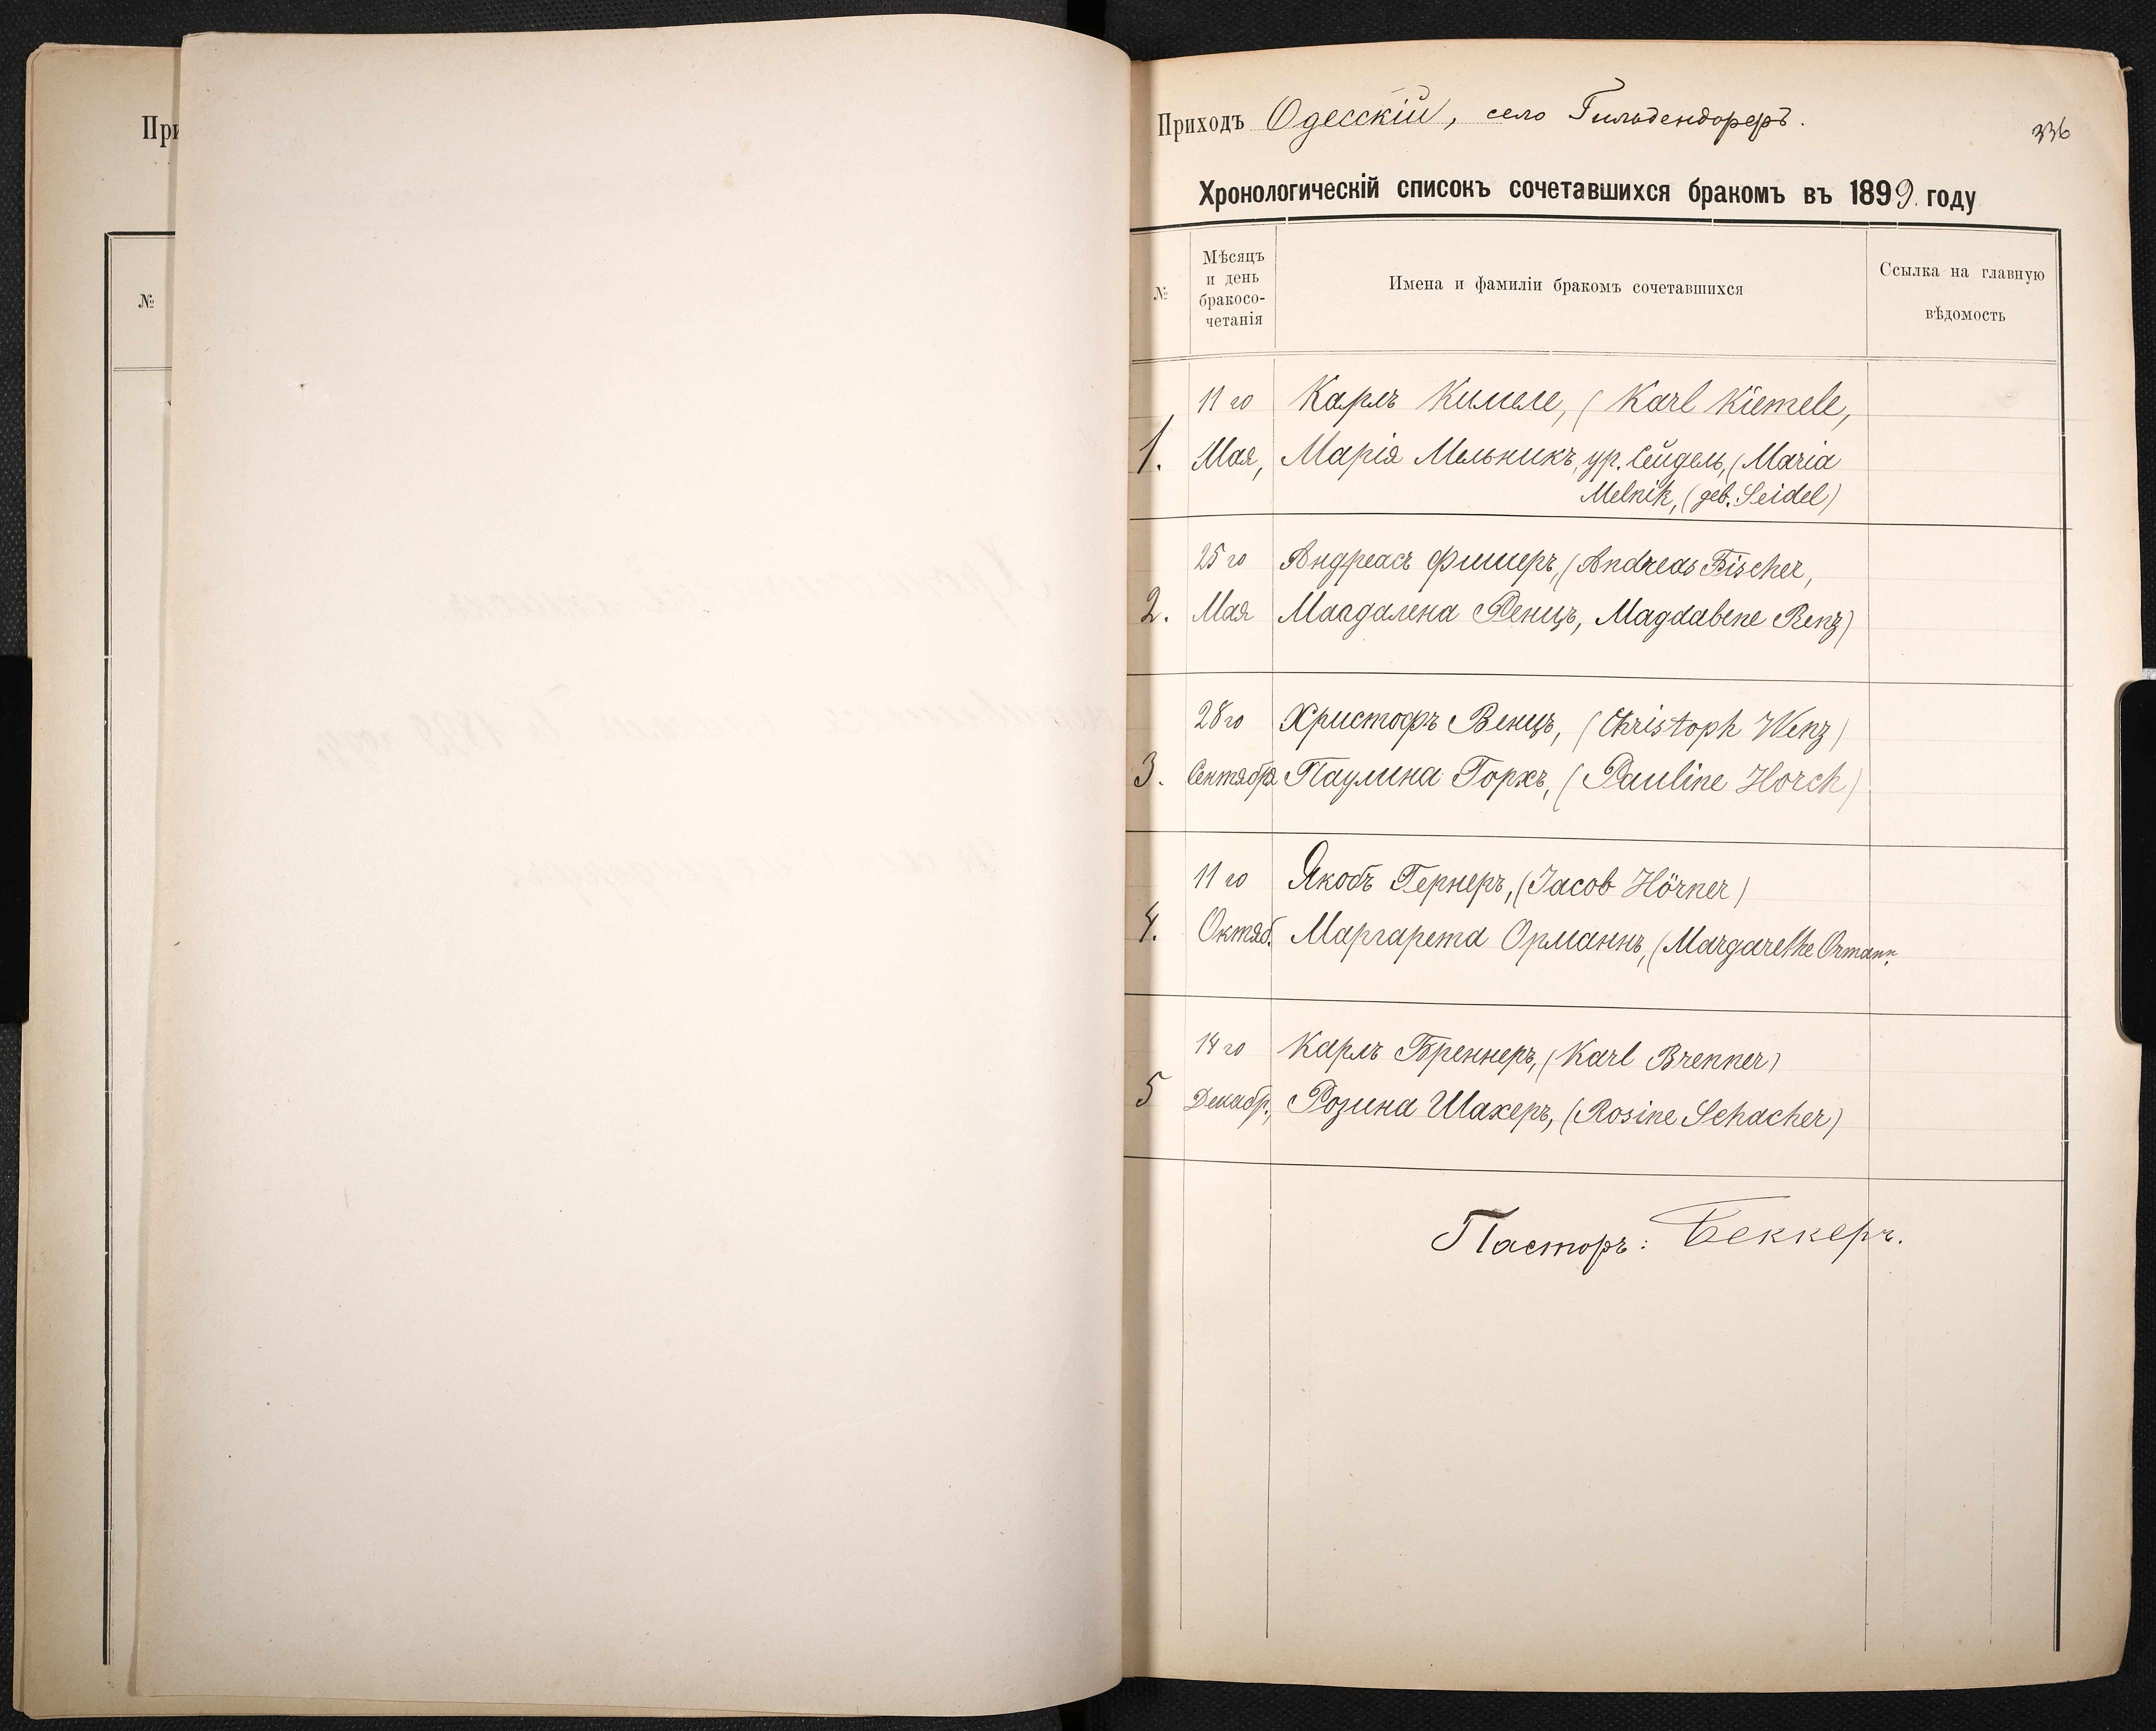 При
№
Приходъ Одесскій, село Гильдендорфъ.
336
Хронологическій списокъ сочетавшихся бракомъ въ 1899 году
№
Мѣсяцъ
и день
бракосо-
четанія
Имена и фамиліи бракомъ сочетавшихся
Ссылка на главную
вѣдомость
11 го Карлъ Кимеле, (Karl Kiemele,
1. Мая, Марія Мельникъ, ур. Сейдель, (Maria
Melnik, (geb. Seidel)
25 го Андреасъ Фишеръ, (Andreas Fischer,
2. Мая Магдалена Ренцъ, Magdabene Renz)
28 го Христофъ Венцъ, (Christoph Wenz)
3. Сентября Паулина Горхъ, (Pauline Horch)
11 го Якобъ Гернеръ, (Jacob Hörner)
4. Октяб. Маргарета Орманнъ, (Margarethe Ormann.
14 го Карлъ Бреннеръ, (Karl Brenner)
5 Декабр., Розина Шахеръ, (Rosine Schacher)
Пасторъ: Беккеръ.